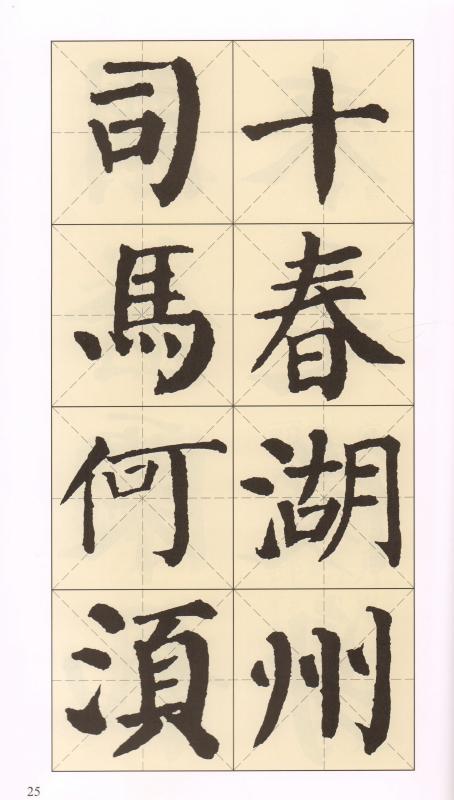 十春湖州
司馬何湏
25